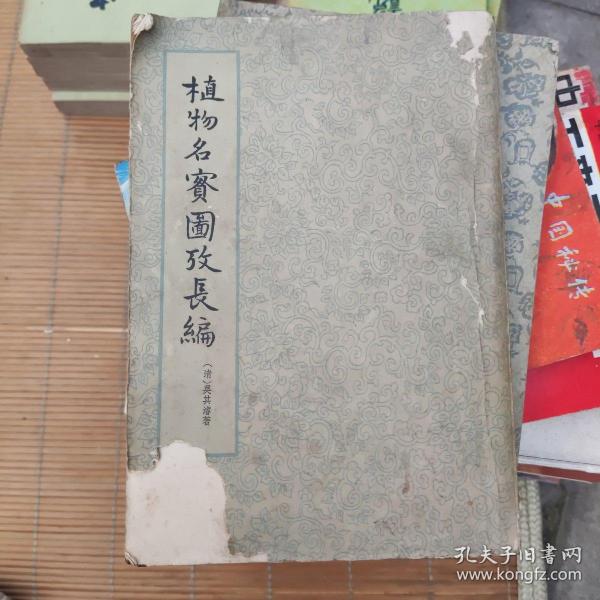 植物名實圖攷長編
（清）吳其濬著
中国秘传
孔夫子旧书网
www.kongfz.com